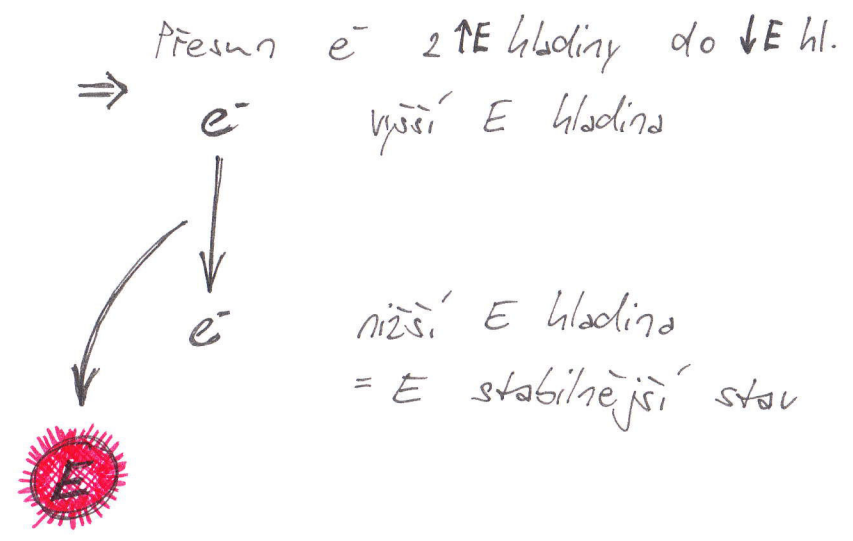 Přesun e⁻ z ↑E hladiny do ↓E hl.
⇒
e⁻ vyšší E hladina
e⁻ nižší E hladina
= E stabilnější stav
E